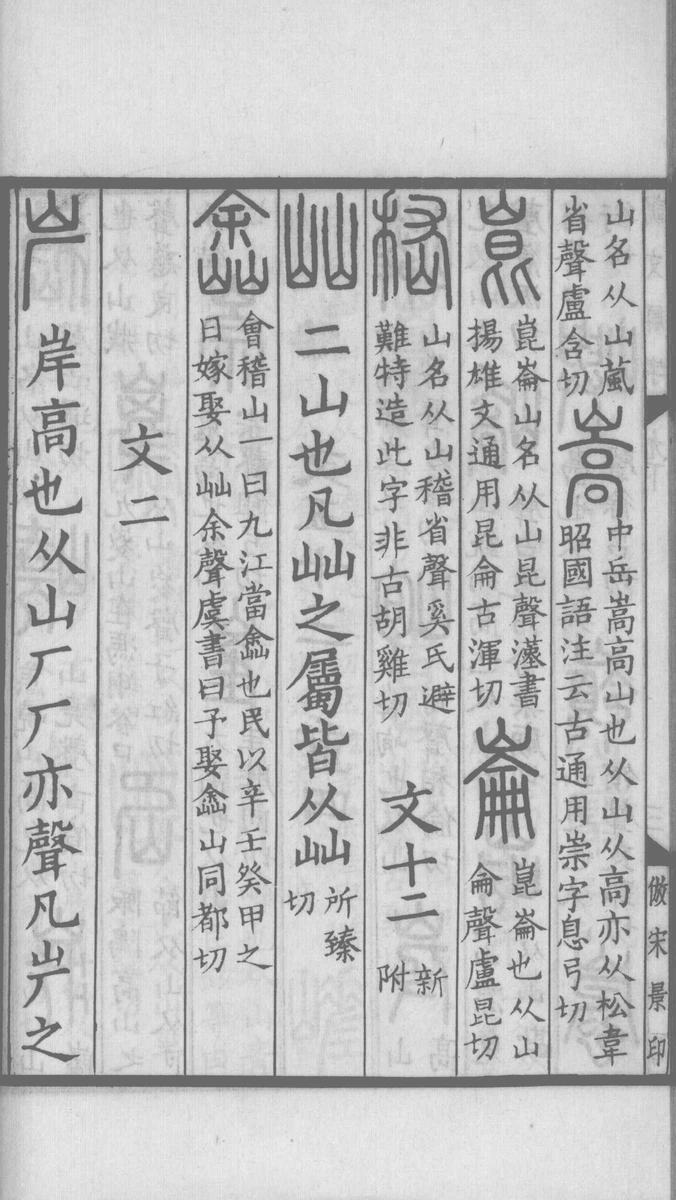 山名从山葻
省聲盧含切
嵩
中岳嵩高山也从山从高亦从松韋
昭國語注云古通用崇字息弓切
崑
崑崙山名从山昆聲漢書
揚雄文通用昆侖古渾切
崙
崑崙也从山
侖聲盧昆切
嵇
山名从山稽省聲奚氏避
難特造此字非古胡雞切
文十二
新
附
屾
二山也凡屾之屬皆从屾
所臻
切
嵞
會稽山一曰九江當嵞也民以辛壬癸甲之
日嫁娶从屾余聲虞書曰予娶嵞山同都切
文二
屵
岸高也从山厂厂亦聲凡屵之
倣宋景印